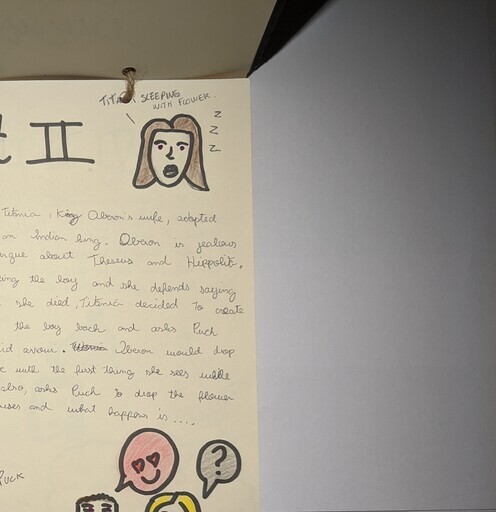 TITANIA SLEEPING
WITH FLOWER.
z
z
z
t II
Titania, King Oberon's wife, adopted
an Indian king. Oberon is jealous
argue about Theseus and Hippolit.
ing the boy and she defends saying
she died, Titania decided to create
the boy back and asks Puck
id arrow. Titania Oberon would drop
e with the first thing she sees while
also, asks Puck to drop the flower
uses and what happens is ....
?
PUCK